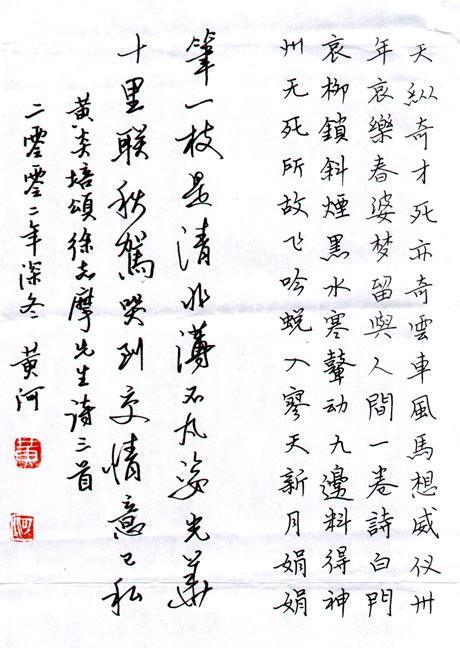 天纵奇才死亦奇雲車風馬想威仪卅
年哀樂春婆梦留與人間一卷詩白門
哀柳鎖斜煙黑水寒鼙动九邊料得神
州无死所故飞吟蜕入寥天新月娟娟
筆一枝是清非薄不凡姿光華
十里联秋駕哭到交情意已私
黄炎培頌徐志摩先生诗三首
二零零二年深冬 黄河
黄
河